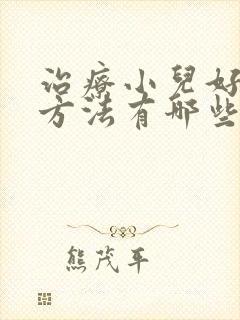 治療小兒好
方法有哪些
熊茂平